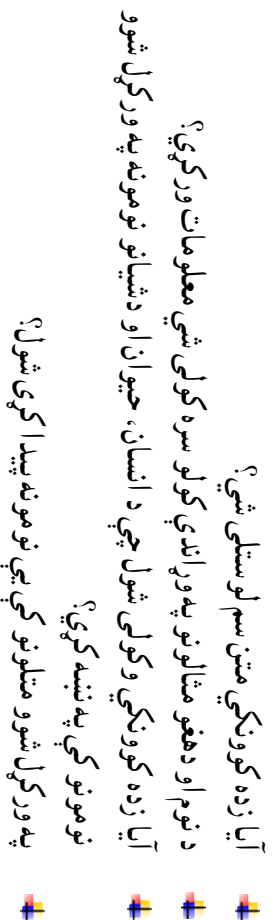 آیا زده کوونکي متن سم لوستلی شي؟
د نوم او دهغو مثالونو په وړاندې کولو سره کولی شي معلومات ورکړي؟
آیا زده کوونکي وکولی شول چې د انسان، حیوان او دشیانو نومونه په ورکړل شوو
نومونو کې په نښه کړي؟
په ورکړل شوو متلونو کې یې نومونه پیدا کړی شول؟